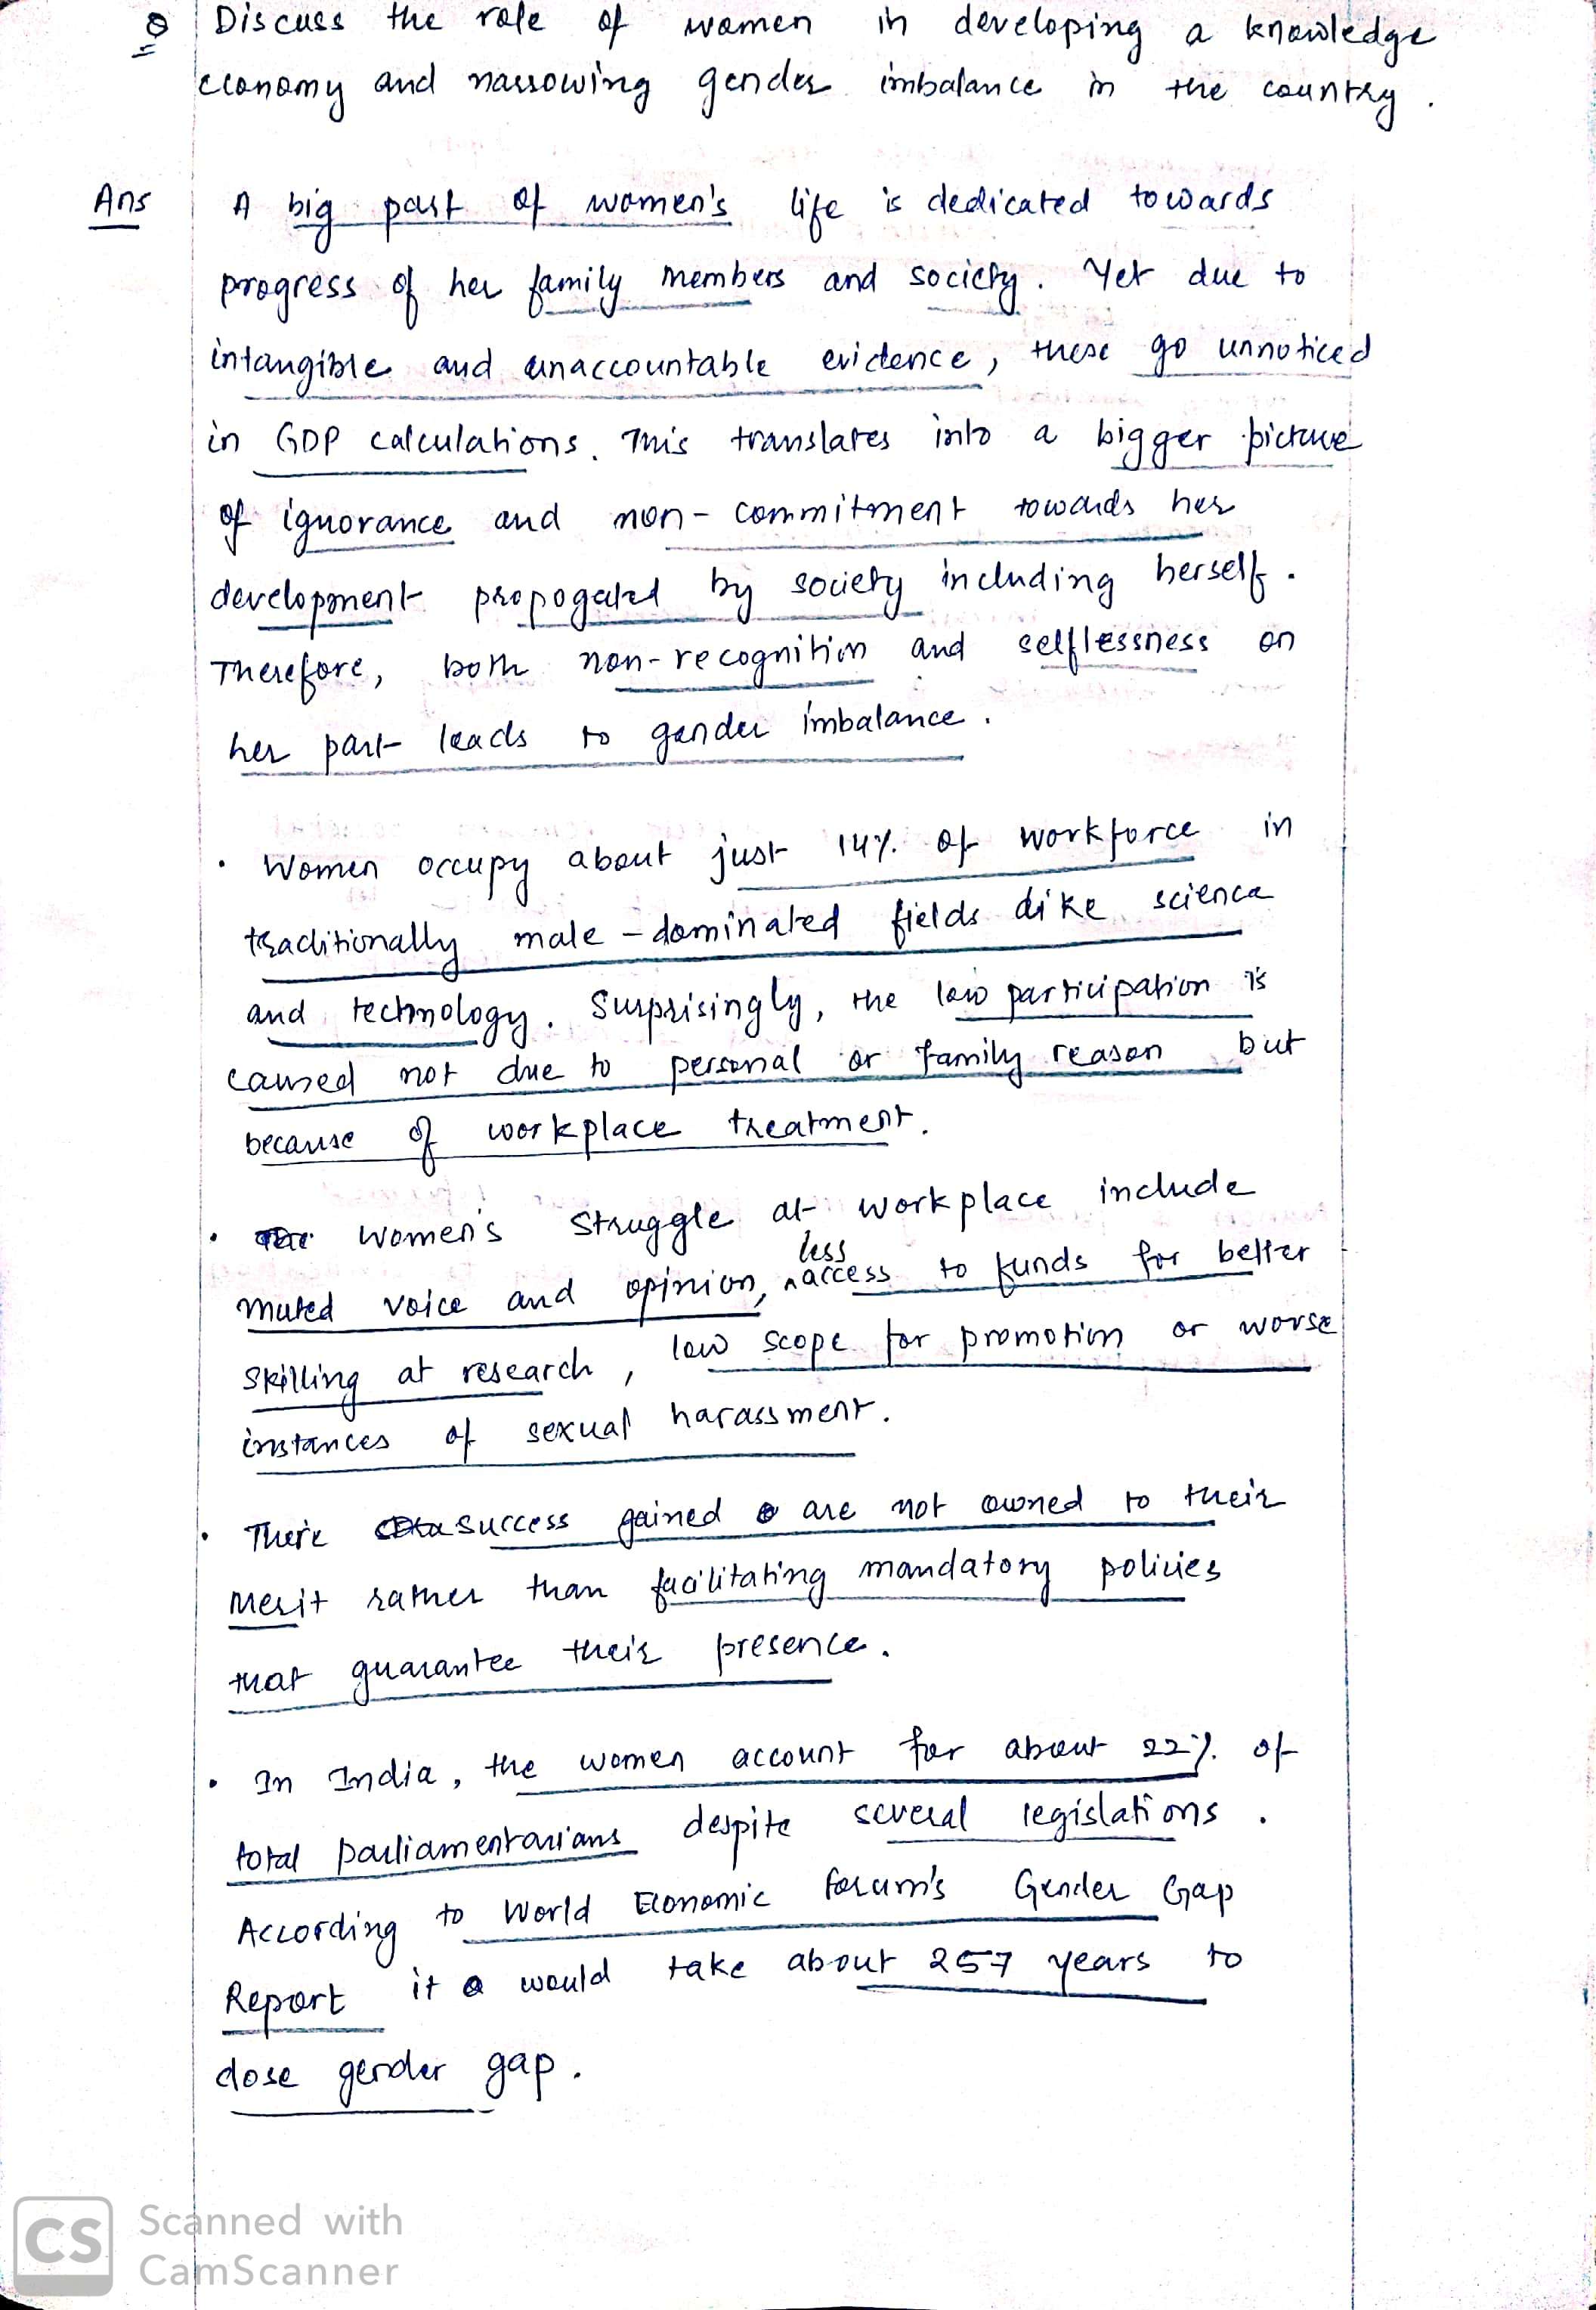 Q Discuss the role of women in developing a knowledge
economy and narrowing gender imbalance in the country.
Ans A big part of women's life is dedicated towards
progress of her family members and society. Yet due to
intangible and unaccountable evidence, these go unnoticed
in GDP calculations. This translates into a bigger picture
of ignorance and non-commitment towards her
development propogated by society including herself.
Therefore, both non-recognition and selflessness on
her part leads to gender imbalance.
• Women occupy about just 14% of workforce in
traditionally male-dominated fields like science
and technology. Surprisingly, the low participation is
caused not due to personal or family reason but
because of workplace treatment.
• Women's struggle at workplace include
muted voice and opinion, less access to funds for better
skilling at research, low scope for promotion or worse
instances of sexual harassment.
• There success gained are not owned to their
merit rather than facilitating mandatory policies
that guarantee their presence.
• In India, the women account for about 22% of
total parliamentarians despite several legislations.
According to World Economic forum's Gender Gap
Report it would take about 257 years to
close gender gap.
CS Scanned with
CamScanner